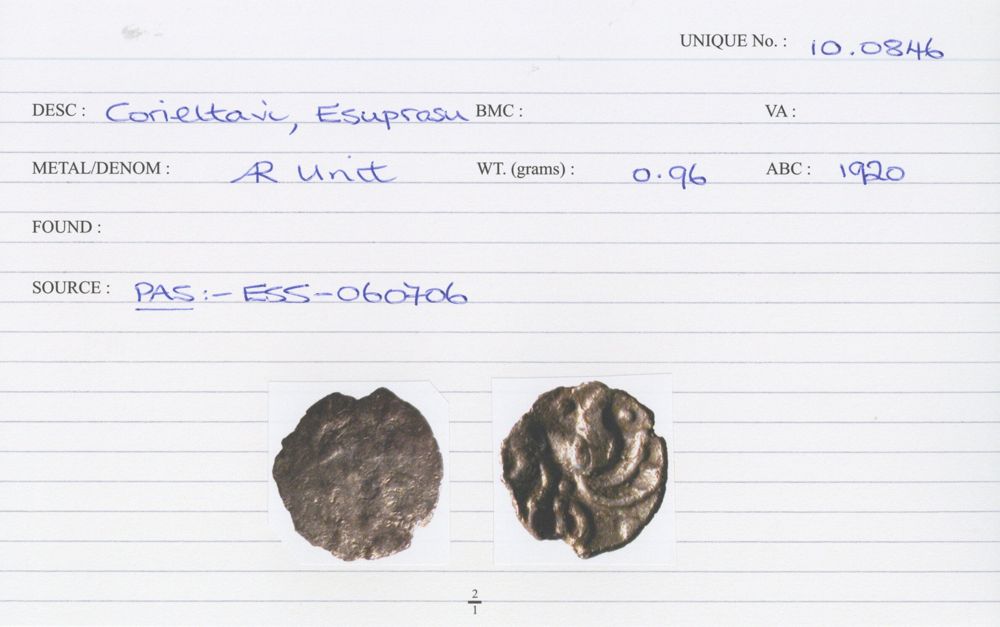 UNIQUE No. : 10.0846
DESC : Corieltavi, Esuprasu BMC : VA :
METAL/DENOM : AR Unit WT. (grams) : 0.96 ABC : 1920
FOUND :
SOURCE : PAS:- ESS-060706
2
1